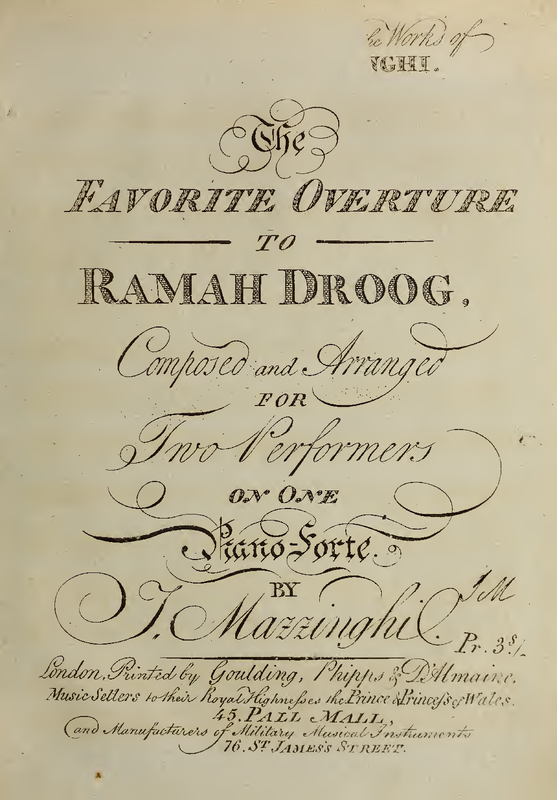 he Works of
NGHI.
The
FAVORITE OVERTURE
TO
RAMAH DROOG,
Composed and Arranged
FOR
Two Performers
ON ONE
Piano-Forte.
BY
J. Mazzinghi.
JM
Pr. 3s/
London, Printed by Goulding, Phipps & D'Almaine,
Music Sellers to their Royal Highneſses the Prince & Princeſs of Wales.
45. PALL MALL,
and Manufacturers of Military Musical Instruments
76. ST JAMES'S STREET.